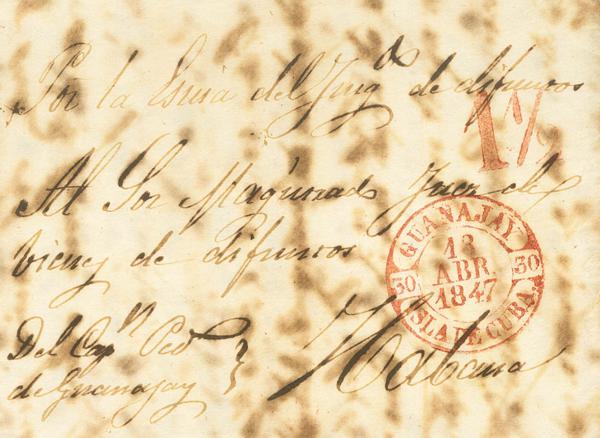 Por la Esnia del Juzg.do de difuntos
1 1/2
Al Sor Magistrado Juez de
bienes de difuntos
GUANAJAY
30 13 30
ABR.
1847
ISLA DE CUBA.
Del Cap.n Ped.o
de Guanajay
Habana